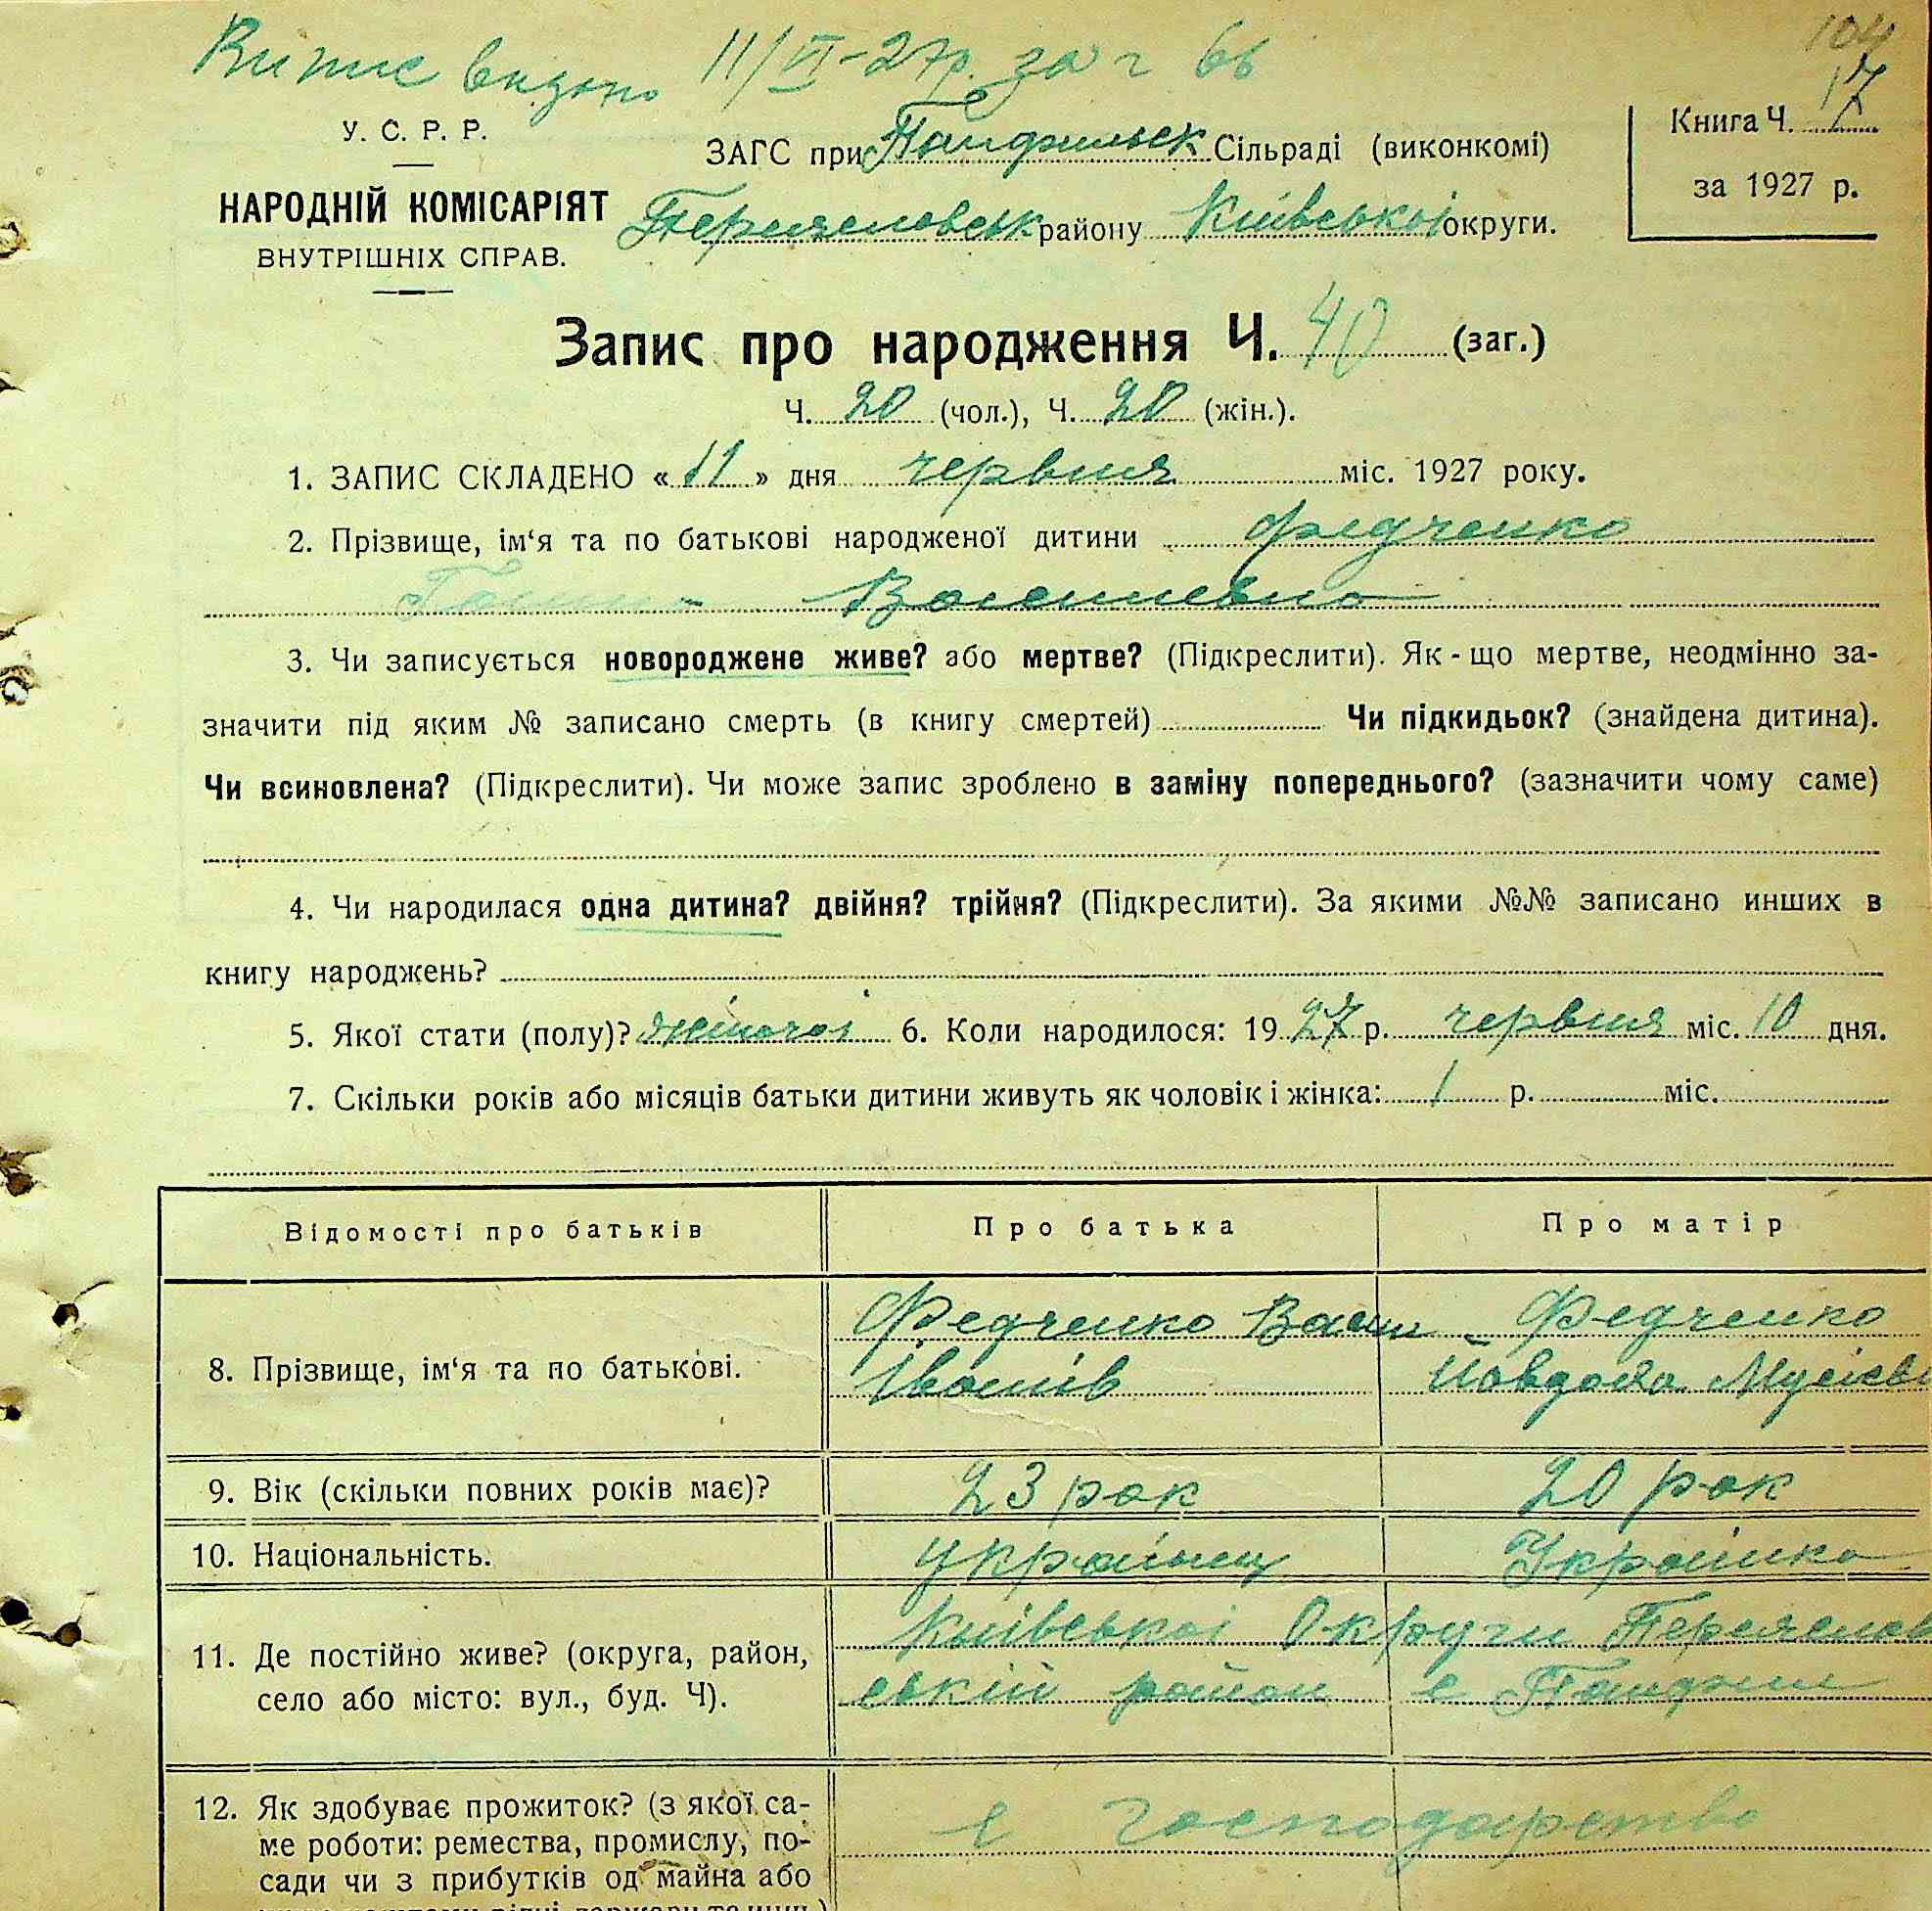 104
Витис видано 11/VI-27р. за ч 66
17
У. С. Р. Р.
ЗАГС при Панфильск Сільраді (виконкомі)
Книга Ч.
за 1927 р.
НАРОДНІЙ КОМІСАРІЯТ
ВНУТРІШНІХ СПРАВ.
Переяславськ району Київської округи.
Запис про народження Ч. 40 (заг.)
Ч. 20 (чол.), Ч. 20 (жін.).
1. ЗАПИС СКЛАДЕНО « 11 » дня червня міс. 1927 року.
2. Прізвище, ім‘я та по батькові народженої дитини Федченко
Василівна
3. Чи записується новороджене живе? або мертве? (Підкреслити). Як-що мертве, неодмінно за-
значити під яким № записано смерть (в книгу смертей) Чи підкидьок? (знайдена дитина).
Чи всиновлена? (Підкреслити). Чи може запис зроблено в заміну попереднього? (зазначити чому саме)
4. Чи народилася одна дитина? двійня? трійня? (Підкреслити). За якими №№ записано инших в
книгу народжень?
5. Якої стати (полу)? жіночої 6. Коли народилося: 19 27 р. червня міс. 10 дня.
7. Скільки років або місяців батьки дитини живуть як чоловік і жінка: 1 р. міс.
Відомості про батьків Про батька Про матір
8. Прізвище, ім‘я та по батькові. Федченко Васил Федченко
Іванів Йовдоха Мусієв
9. Вік (скільки повних років має)? 23 рок 20 рок
10. Національність. українец Українка
11. Де постійно живе? (округа, район, Київської Округи Переяслав
село або місто: вул., буд. Ч). ській район с Панфили
12. Як здобуває прожиток? (з якої са- с господарство
ме роботи: ремества, промислу, по-
сади чи з прибутків од майна або